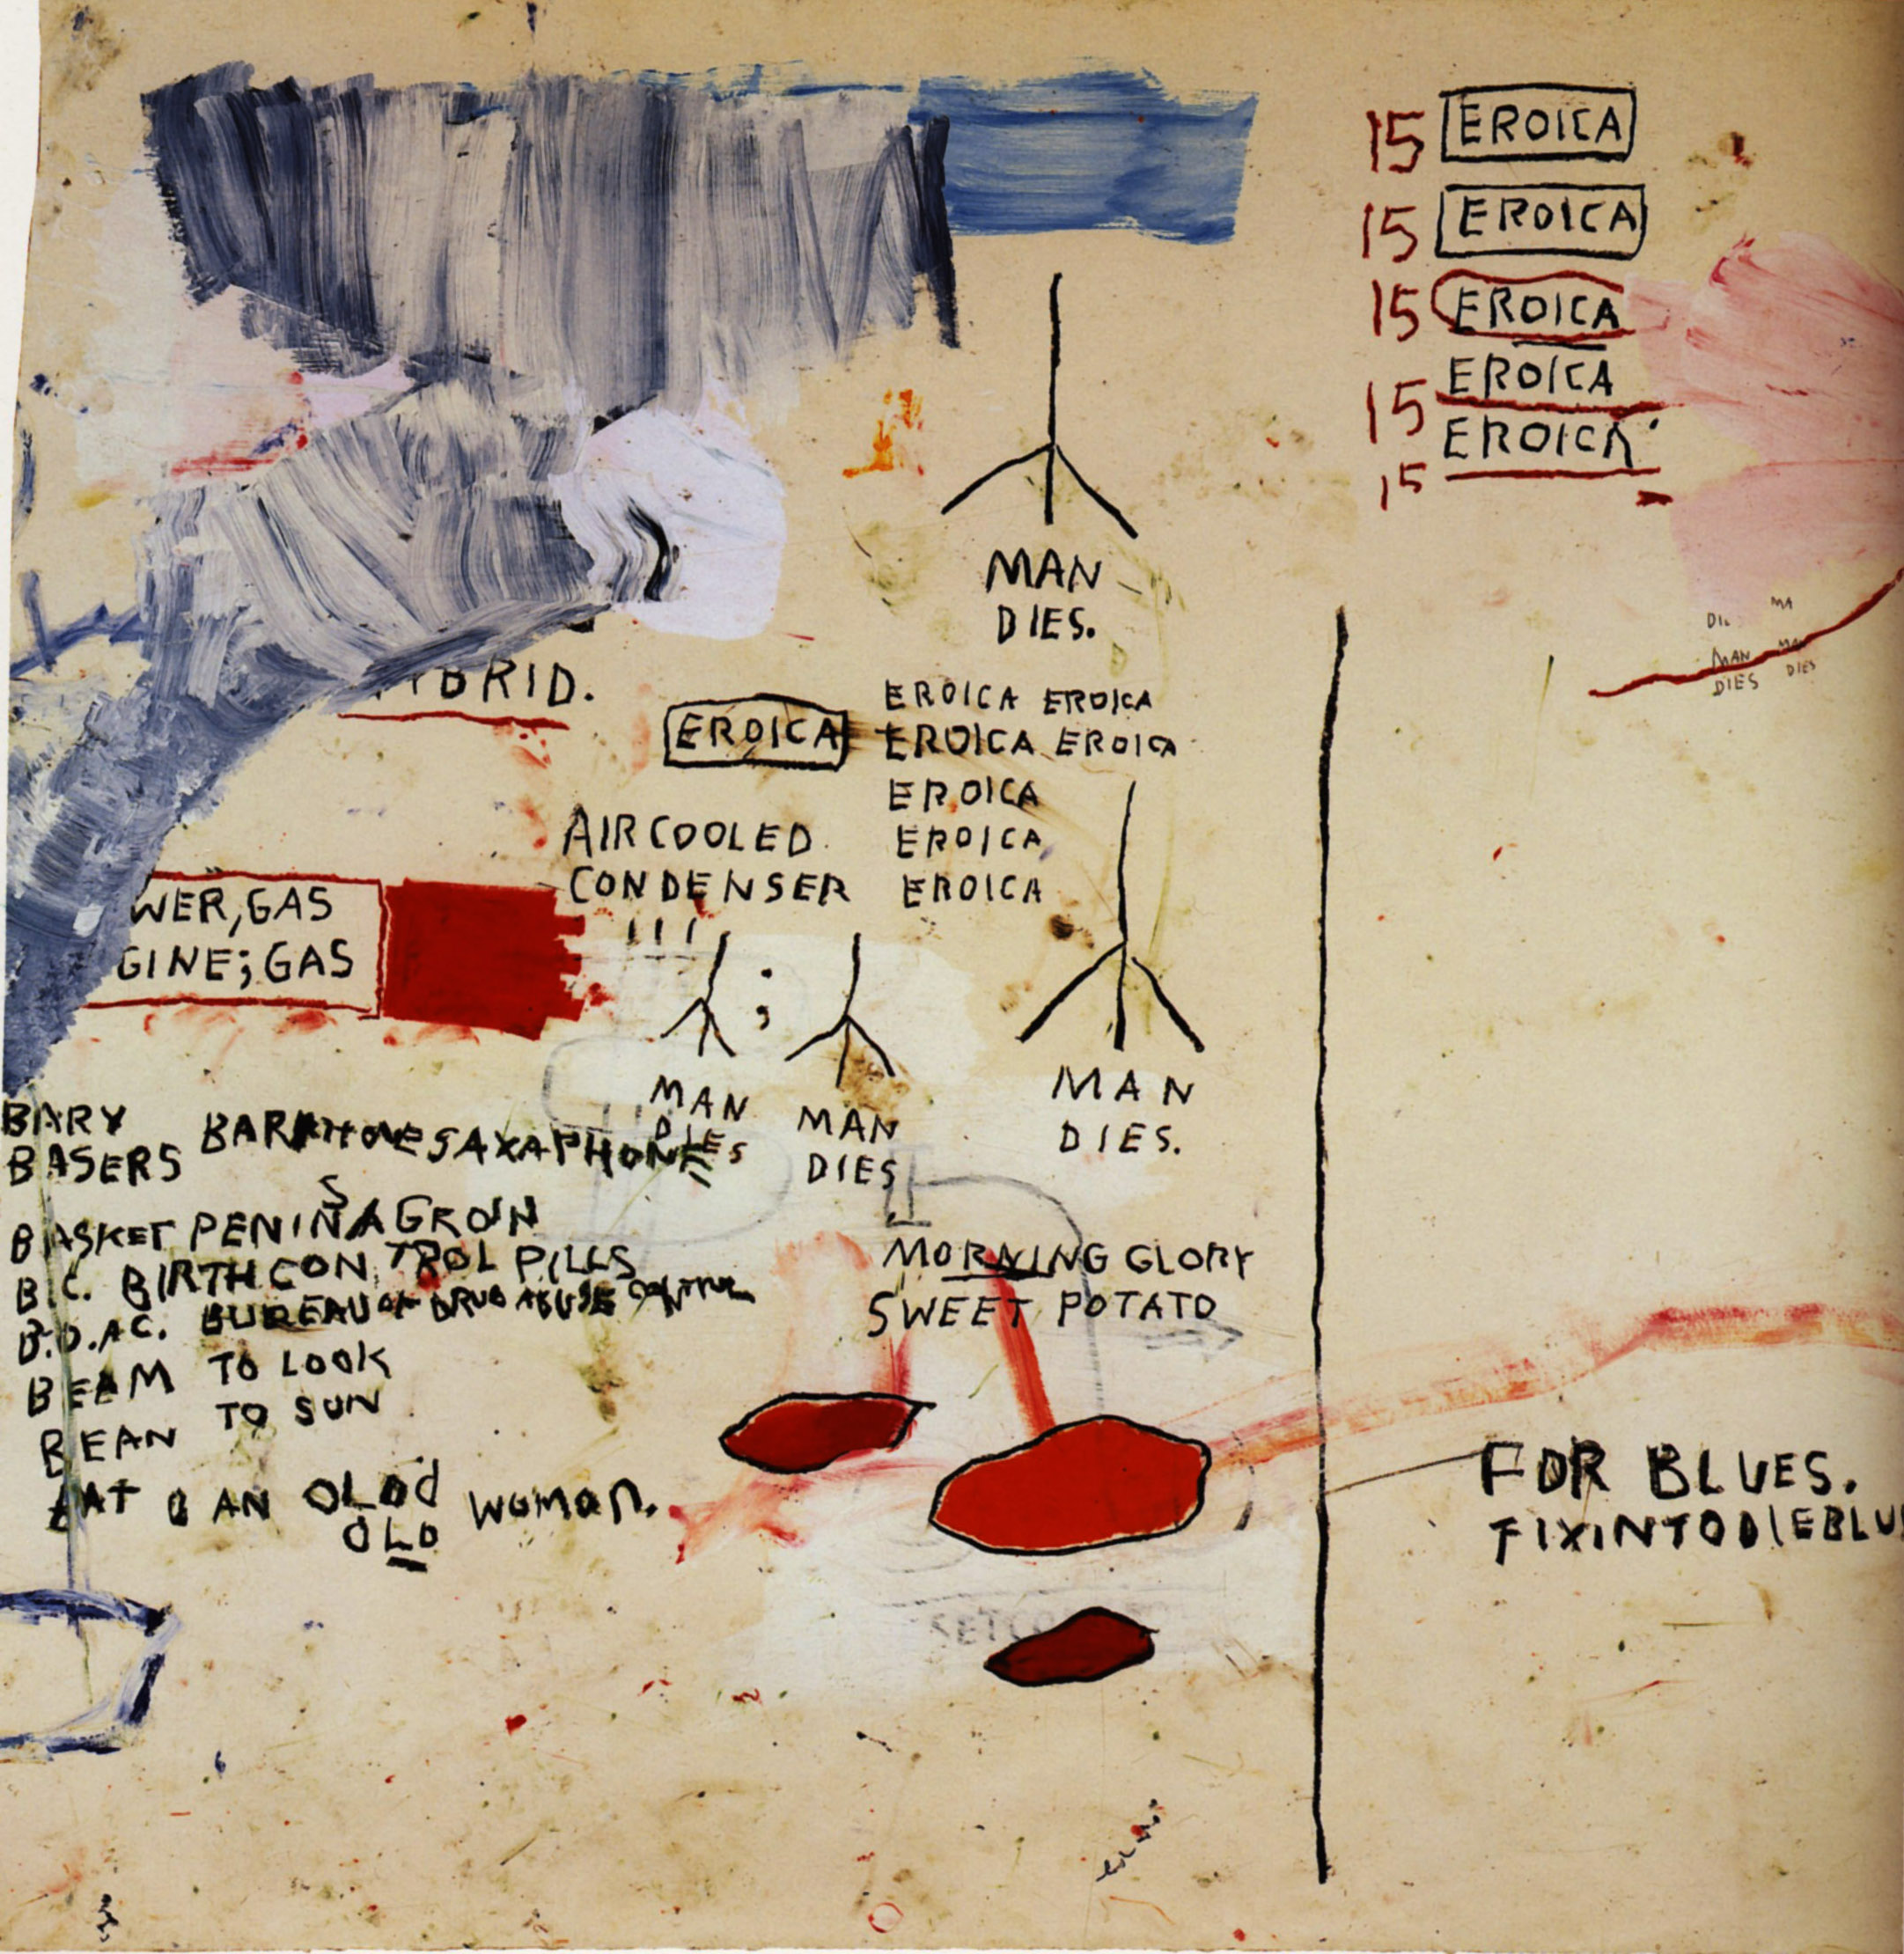 15 EROICA
15 EROICA
15 EROICA
15 EROICA
15 EROICA
MAN
DIES.
MA
MAN
DIES
DIES
BRID.
EROICA
EROICA EROICA
EROICA EROICA
EROICA
EROICA
EROICA
AIRCOOLED
CONDENSER
WER, GAS
GINE; GAS
;
MAN
DIES
MAN
DIES
MAN
DIES.
BARY
BASERS
SAXAPHONE
S
BASKET PENIN A GROIN
B.C. BIRTH CONTROL PILLS
B.D.AC. BUREAU OF DRUG ABUSE CONTROL
BEAM TO LOOK
BEAN TO SUN
AN OLD WOMAN.
OLD
MORNING GLORY
SWEET POTATO
FOR BLUES.
FIXINTODIEBLU